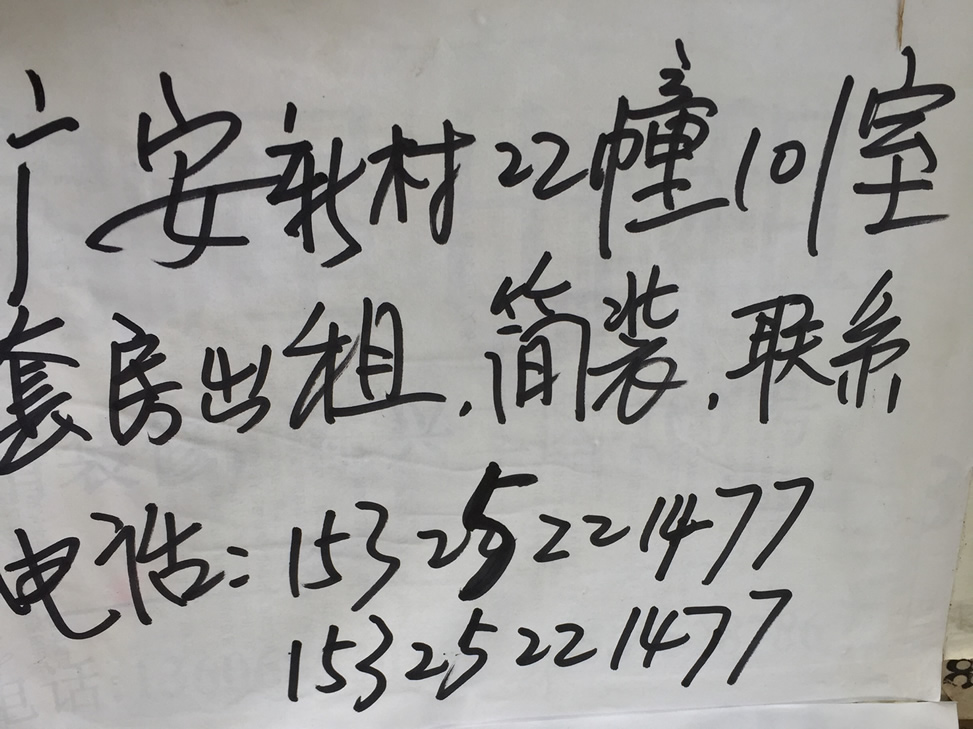 广安新村22幢101室
套房出租.简装.联系
电话:15325221477
15325221477